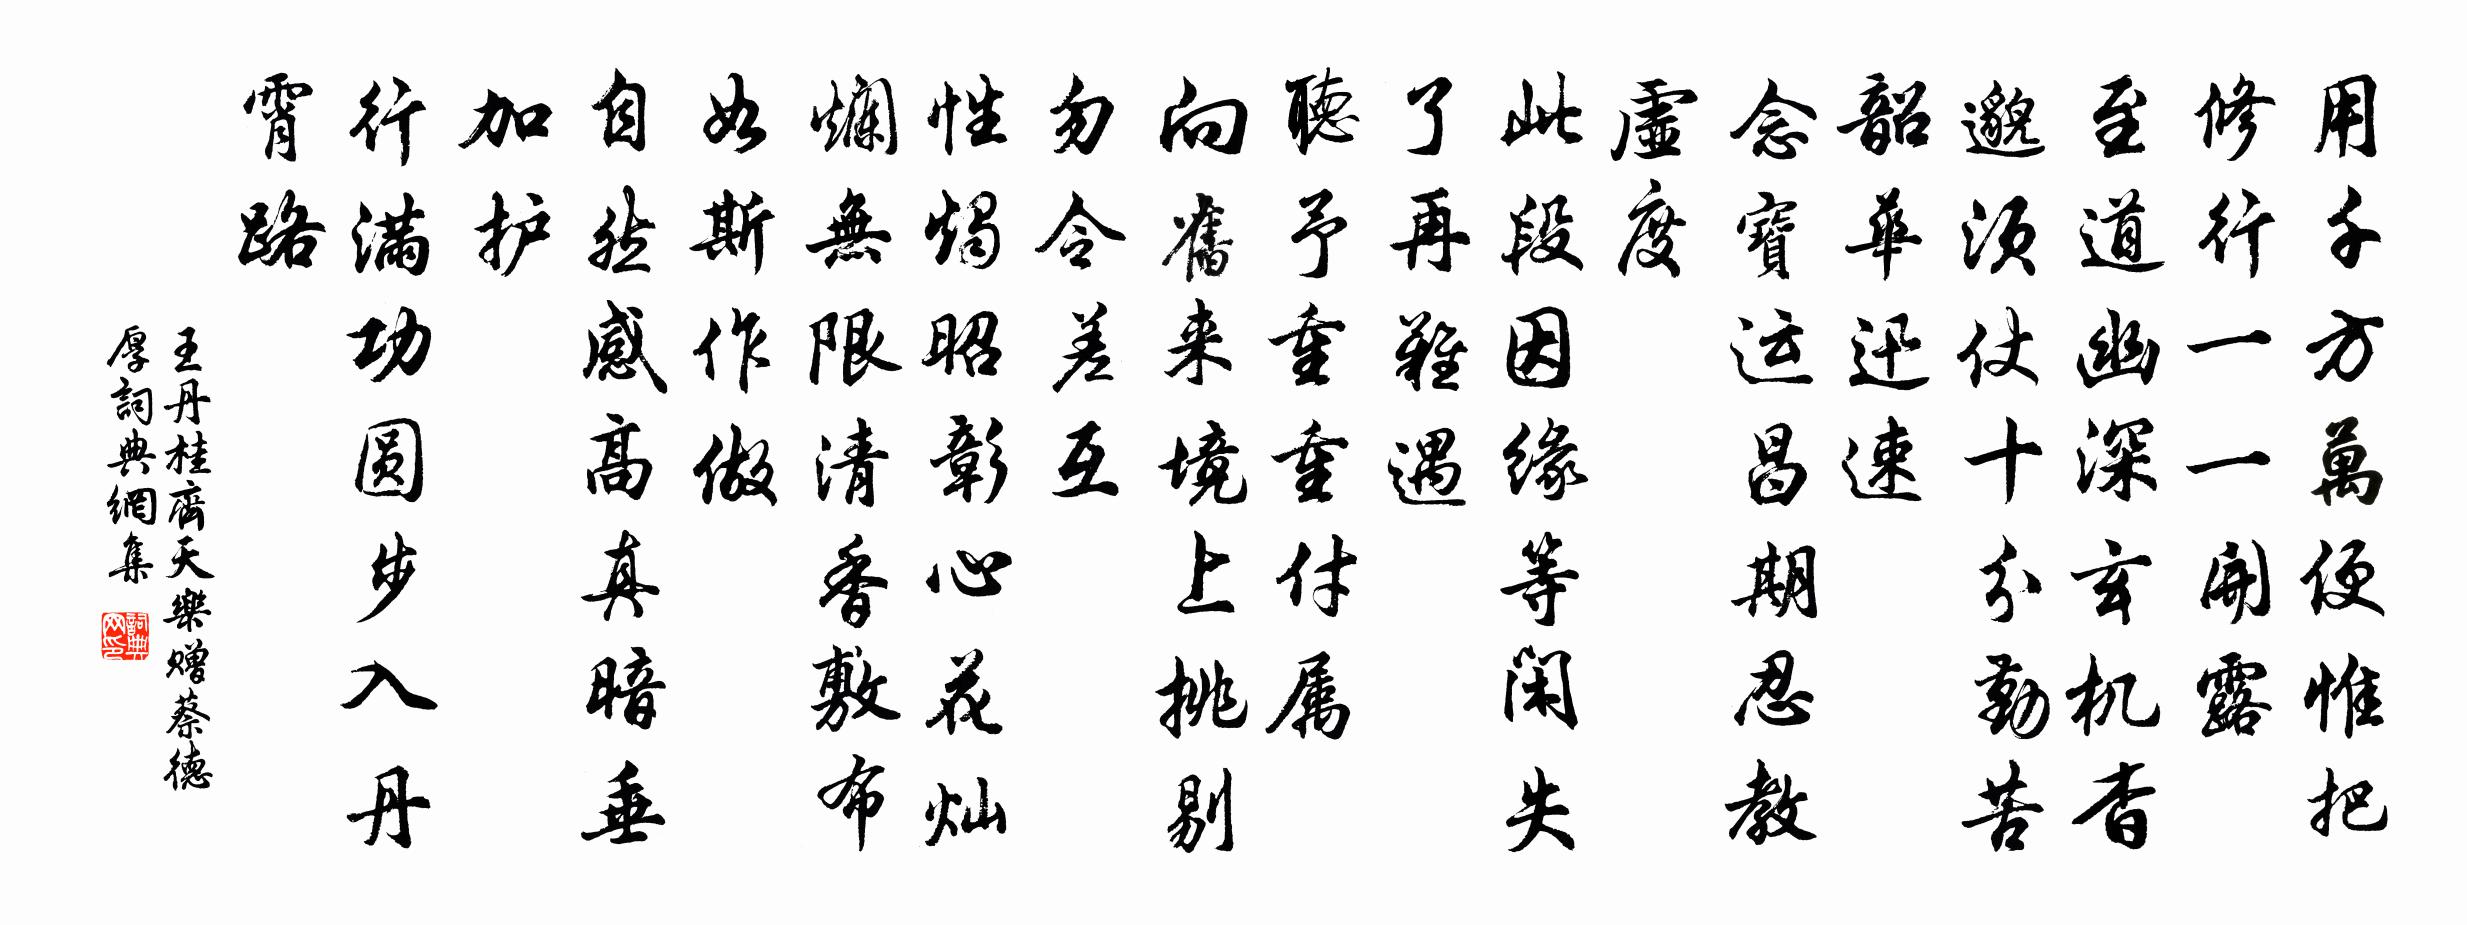 用千方萬便惟把
修行一一開露
至道幽深玄机杳
邈须仗十分勤苦
韶華迅速
念寶运昌期忍教
虛度
此段因缘等闲失
了再難遇
聽予重重付属
向舊来境上挑剔
勿令差互
性燭昭彰心花灿
爛無限清香敷布
如斯作做
自然感高真暗垂
加护
行满功圆步入丹
霄路
王丹桂齊天樂赠蔡德
厚詞典網集
詞典
网印